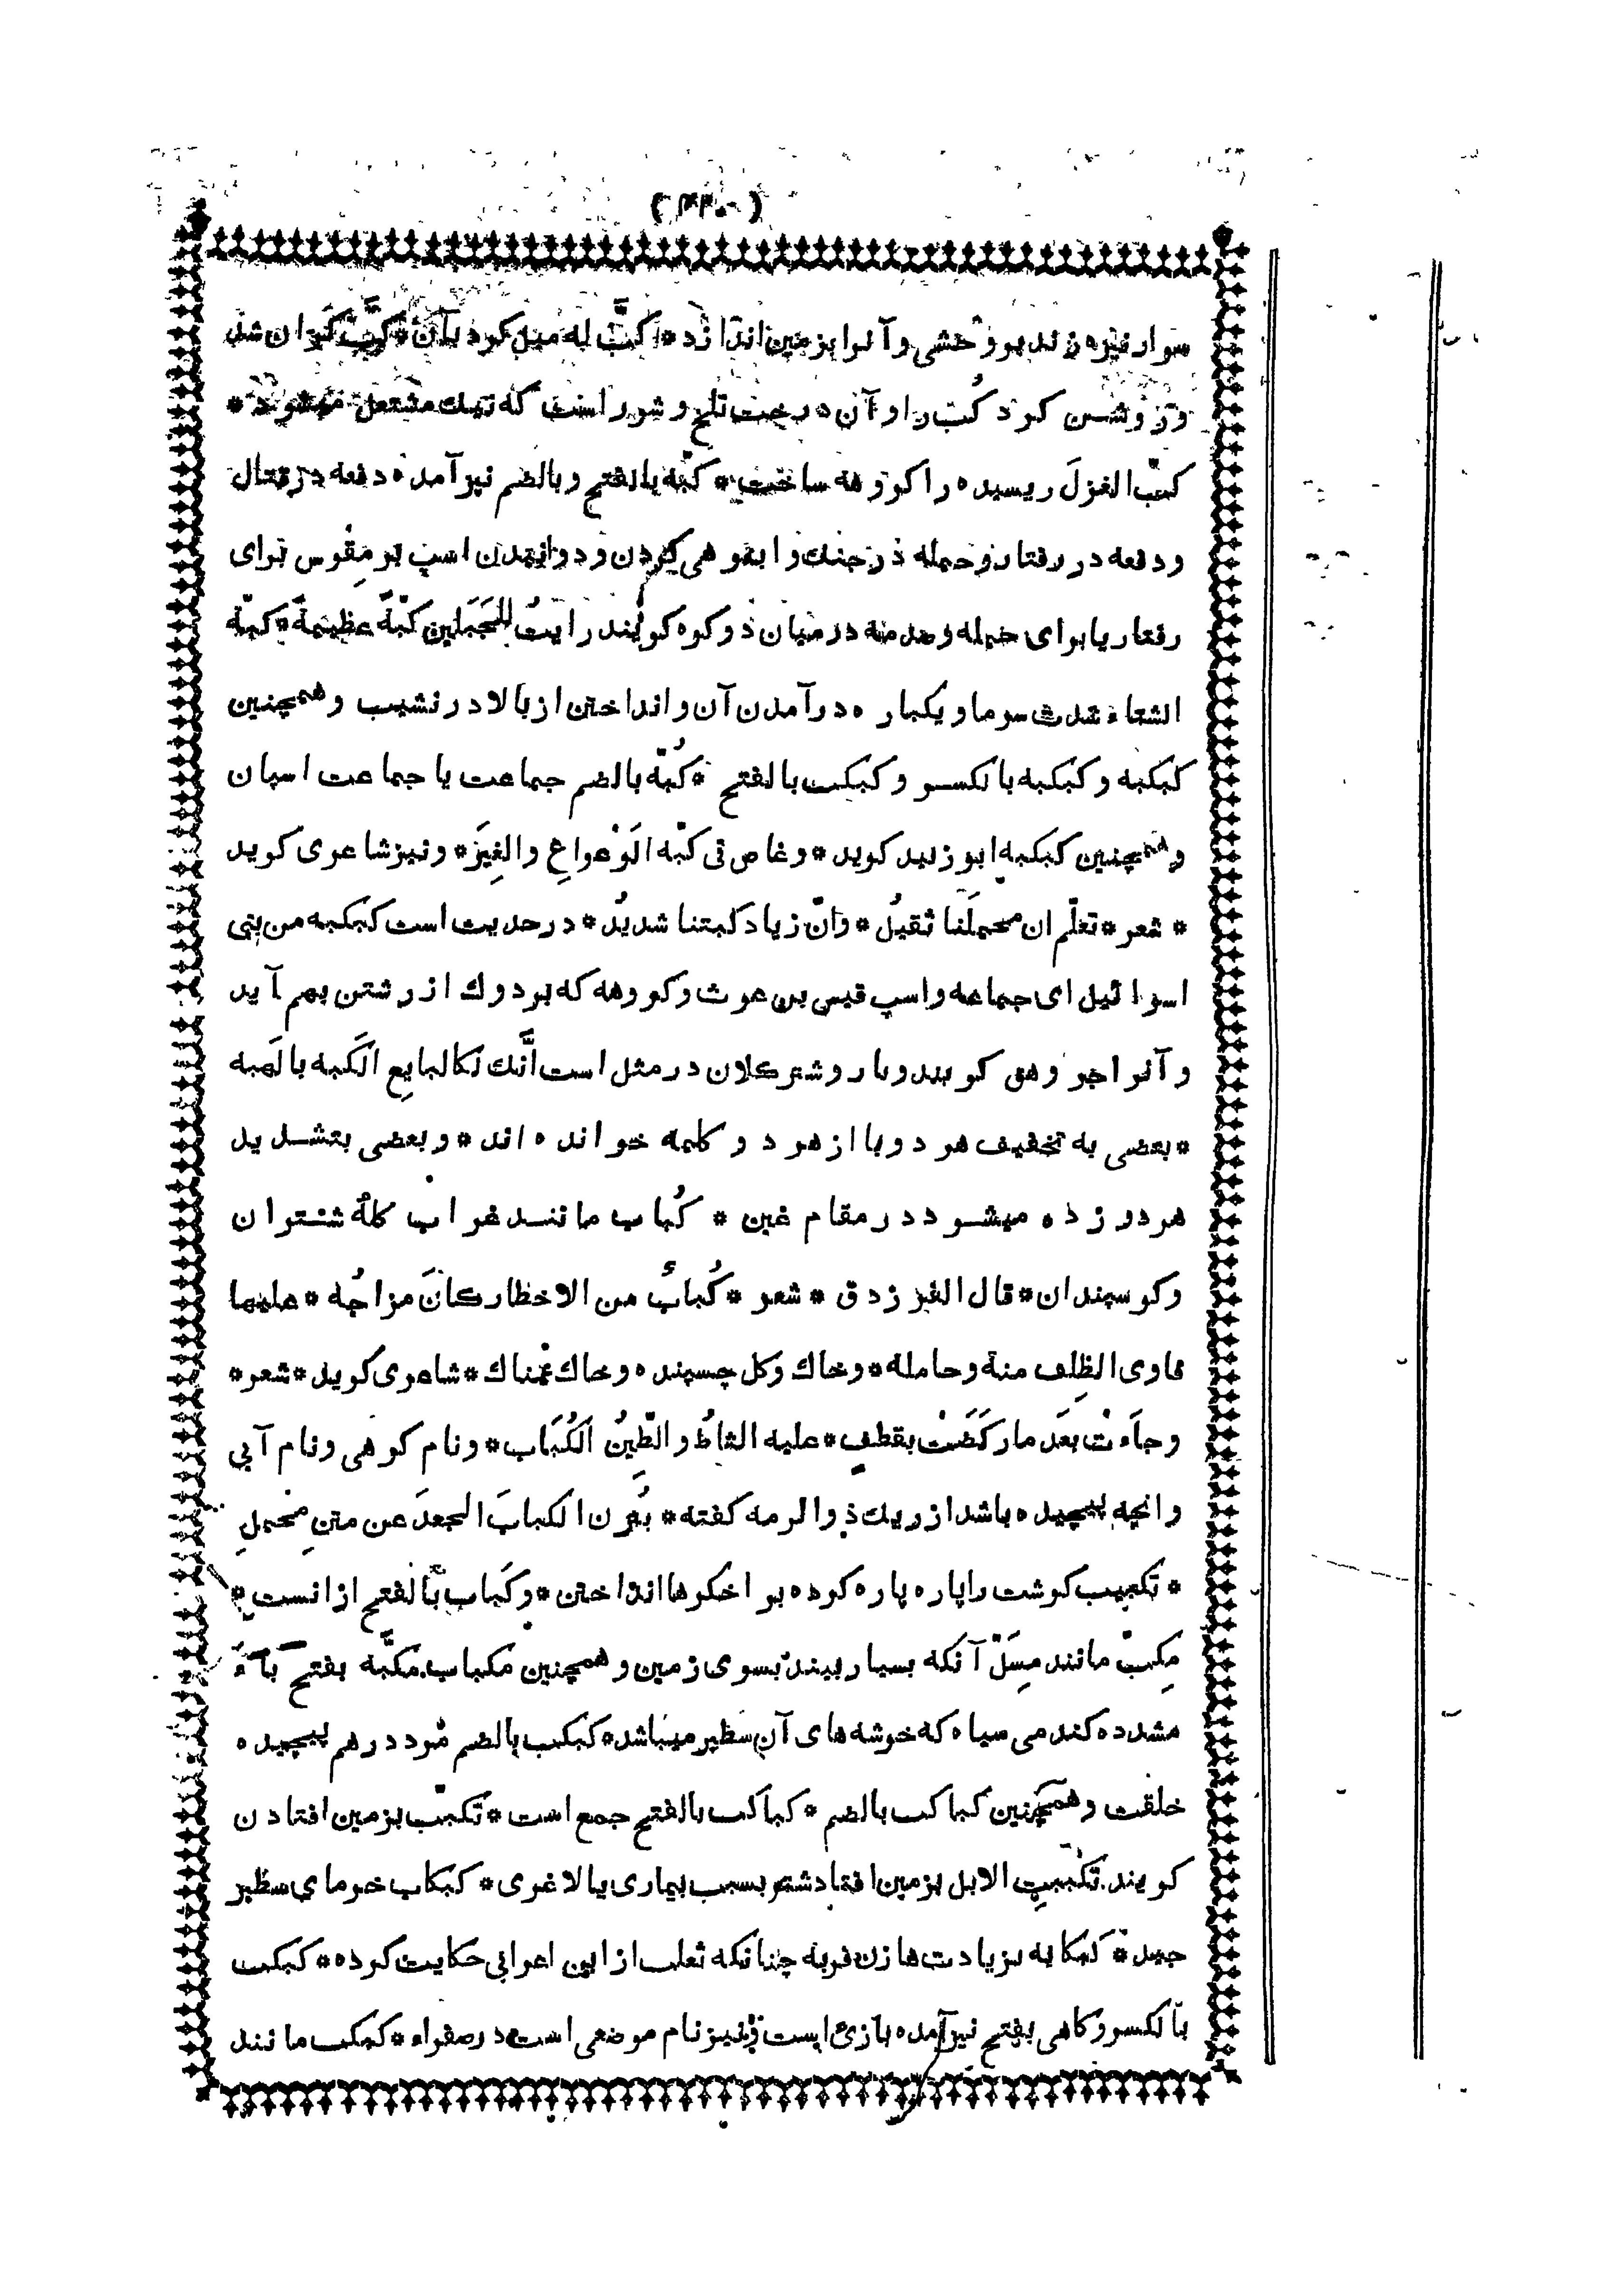 سوار نیزه زند بر وحشی و آنرا بزمین اندازد * کبَّ له میل کرد بآن * کبَّ گران شد
و روشن کرد کُبّ را و آن درخت تلخ و شور است که نیك مشتعل میشود *
کبّ الغزلَ ریسیده را کروهه ساخت * کبّه بالفتح و بالضم نیز آمده دفعه در قتال
و دفعه در رفتار و حمله در جنك و انبوهی کردن و دوانیدن اسپ بر مقوس برای
رفتار یا برای حمله و صدمه در میان دو کوه کویند رایتُ للجَبَلین کبّةً عظیمةً * کبّة
الشتاء شدت سرما و یکباره درآمدن آن و انداختن از بالا در نشیب و همچنین
کبکبه و کبکبه بالکسر و کبکب بالفتح * کُبّه بالضم جماعت یا جماعت اسپان
و همچنین کبکبه ابو زبید کوید * وغاص فی کبّه الوَعواعِ والغِیَرَ * و نیز شاعری کوید
* شعر * تعلّم ان محملَنا ثقیلُ * وانّ زیاد کبتنا شدیدُ * در حدیث است کبکبه من بنی
اسرائیل ای جماعه و اسپ قیس بن عوث و کروهه که بر دوك از رشتن بهم آید
و آنرا جروهق کویند و بار و شتر کلان در مثل است انَّك لکالبایعِ الکَبه بالهَبه
* بعضی به تخفیف هر دو با از هر دو کلمه خوانده اند * و بعضی بتشدید
هر دو زده میشود در مقام غبن * کُباب مانند غراب کلهٔ شتران
و کوسپندان * قال الفرزدق * شعر * کُبابُ من الاخطار کانَ مزاحُه * علیها
فاوی الظِلف منه وحامله * و خاك و کل چسپنده و خاك نمناك * شاعری کوید * شعر *
وجاءَت بعدَ ما رکَضَتْ بقطفٍ * علیه الثاطُ والطّینُ الکُبَاب * و نام کوهی و نام آبی
و انچه پیچیده باشد از ریك ذو الرمه کفته * یُثِرن الکبابَ الجعدَ عن متنِ محملِ
* تکبیب کوشت را پاره پاره کرده بر اخکرها انداختن * و کَباب بالفتح از انست *
مِکبّ مانند مِسَلّ آنکه بسیار بیند بسوی زمین و همچنین مکباب. مکبَّه بفتح باءَ
مشدده کندمی سیاه که خوشه های آن سطبر میباشد * کبکب بالضم مرد درهم پیچیده
خلقت و همچنین کباکب بالضم * کباکب بالفتح جمع است * تکبّب بزمین افتادن
کویند. تکبّبتِ الابل بزمین افتاد شتر بسبب بیماری یا لاغری * کبکاب خرمای سطبر
جید * کبکابه بزیادت ها زن فربه چنانکه ثعلب از ابن اعرابی حکایت کرده * کبکب
بالکسر و کاهی بفتح نیز آمده بازی ایست و نیز نام موضعی است در صفراء * کبکب مانند